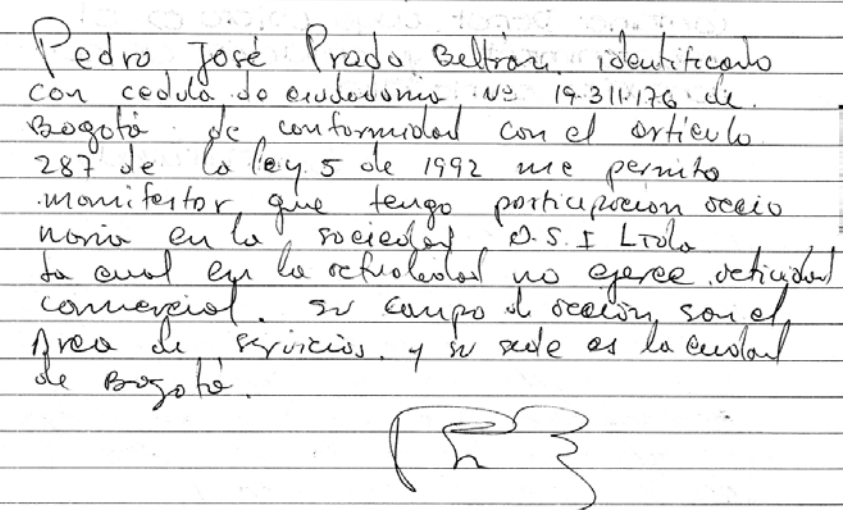 Pedro José Prado Beltrán, identificado
con cedula de ciudadania Nº 19.311.176 de
Bogotá de conformidad con el artículo
287 de la ley 5 de 1992 me permito
manifestar, que tengo participación accio
naria en la sociedad O.S.I Ltda
la cual en la actualidad no ejerce actividad
comercial. su campo de acción son el
Area de servicios. y su sede es la ciudad
de Bogotá.